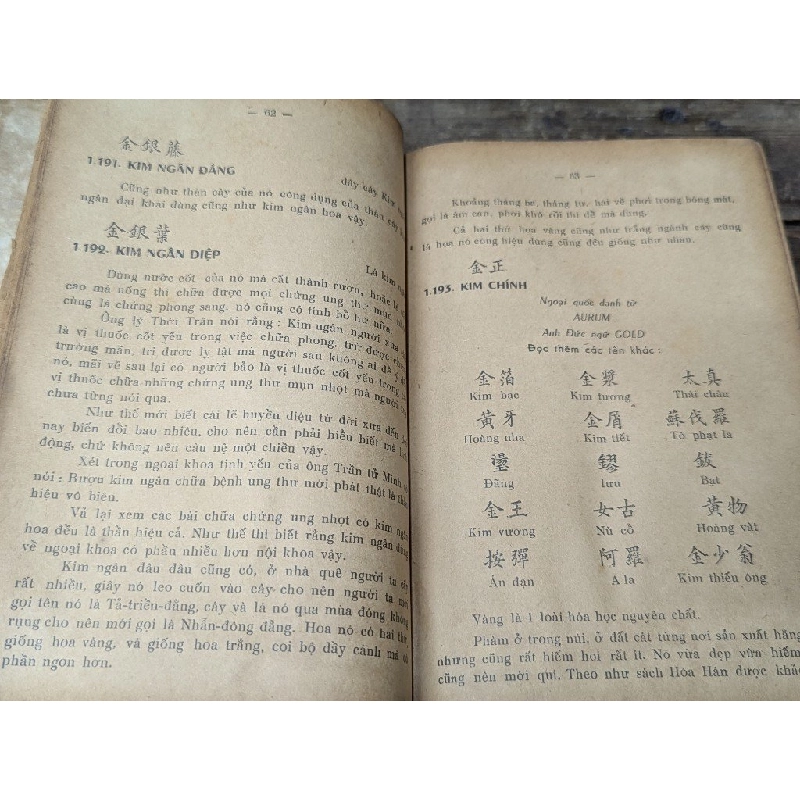 — 62 —
金銀藤
1.191- KIM NGÂN DẰNG
dây cây Kim
Cũng như thân cây của nó công dụng của thân cây
ngân đại khái dùng cũng như kim ngân hoa vậy.
金銀葉
1.192- KIM NGÂN DIỆP
Lá kim
Dùng nước cốt của nó mà cất thành rượu, hoặc là
cao mà uống thì chữa được mọi chứng ung thư mụn
cùng là chứng phong sang, nó cũng có tính bổ hư nữa.
Ông lý Thời Trân nói rằng : Kim ngân người xưa
là vị thuốc cốt yếu trong việc chữa phong, trừ được
trướng mãn, trị được lỵ tật mà người sau không ai để ý
nó, mãi về sau lại có người bảo là vị thuốc cốt yếu trong
vị thuốc chữa những chứng ung thư mụn nhọt mà người
chưa từng nói qua.
Như thế mới biết cái lẽ huyền diệu từ đời xưa đến
nay biến đổi bao nhiêu, cho nên cần phải hiểu biết mà
động, chứ không nên câu nệ một chiều vậy.
Xét trong ngoại khoa tinh yếu của ông Trần tử Minh
nói : Rượu kim ngân chữa bệnh ung thư mới phát thật là
hiệu vô biên.
Vả lại xem các bài chữa chứng ung nhọt có kim ngân
hoa đều là thần hiệu cả. Như thế thì biết rằng kim ngân dùng
về ngoại khoa có phần nhiều hơn nội khoa vậy.
Kim ngân đâu đâu cũng có, ở nhà quê người ta
rất nhiều, giây nó leo cuốn vào cây cho nên người ta mới
gọi tên nó là Tả-triền-đằng, cây và lá nó qua mùa đông không
rụng cho nên mới gọi là Nhẫn-đông đằng. Hoa nó có hai thứ
giống hoa vàng, và giống hoa trắng, coi bộ dầy cánh mà có
phần ngon hơn.
— 63 —
Khoảng tháng ba, tháng tư, hái về phơi trong bóng mát,
gọi là âm can, phơi khô rồi thì để mà dùng.
Cả hai thứ hoa vàng cũng như trắng ngành cây cùng
là hoa nó công hiệu dùng cũng đều giống như nhau.
金正
1.193- KIM CHÍNH
Ngoại quốc danh từ
AURUM
Anh Đức ngữ GOLD
Đọc thêm các tên khác :
金箔 金漿 太真
Kim bạc Kim tương Thái chân
黃牙 金屑 蘇伐羅
Hoàng nha Kim tiết Tô phạt la
璗 鏐 鈸
Đãng lưu Bạt
金王 女古 黃物
Kim vương Nữ cổ Hoàng vật
按彈 阿羅 金少翁
Án đạn A la Kim thiếu ông
Vàng là 1 loài hóa học nguyên chất.
Phàm ở trong núi, ở đất cát từng nơi sản xuất hằng
nhưng cũng rất hiếm hoi rất ít. Nó vừa đẹp vừa hiếm
cũng nên mới quí. Theo như sách Hòa Hán dược khảo